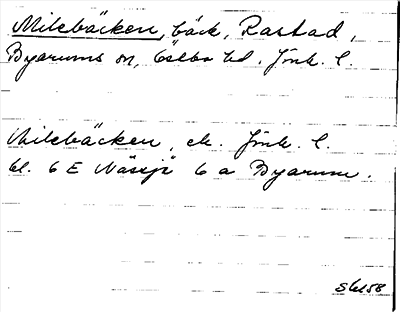 Milebäcken, bäck, Rastad,
Byarums sn, Östbo hd. Jönk. l.
Milebäcken, ek. Jönk. l.
bl. 6 E Nässjö 6 a Byarum.